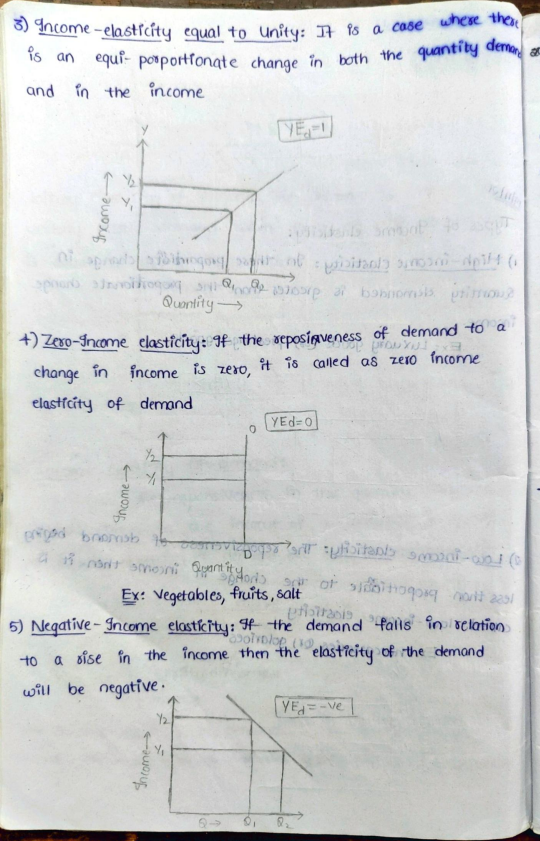 3) Income-elasticity equal to Unity: It is a case where there
is an equi-porportionate change in both the quantity deman
and in the income
Y
YEd=1
Y2
Y1
Income→
Q1 Q2
Quantity →
4) Zero-Income elasticity: If the
change in income is zero, it is called as zero income
of demand to a
elasticity of demand
D
YEd=0
Y2
Y1
Income→
D
Quantity
Ex: Vegetables, fruits, salt
5) Negative-Income elasticity: If the demand falls in relation
to a rise in the income then the elasticity of the demand
will be negative.
YEd=-ve
Y2
Y1
Income→
Q→ Q1 Q2